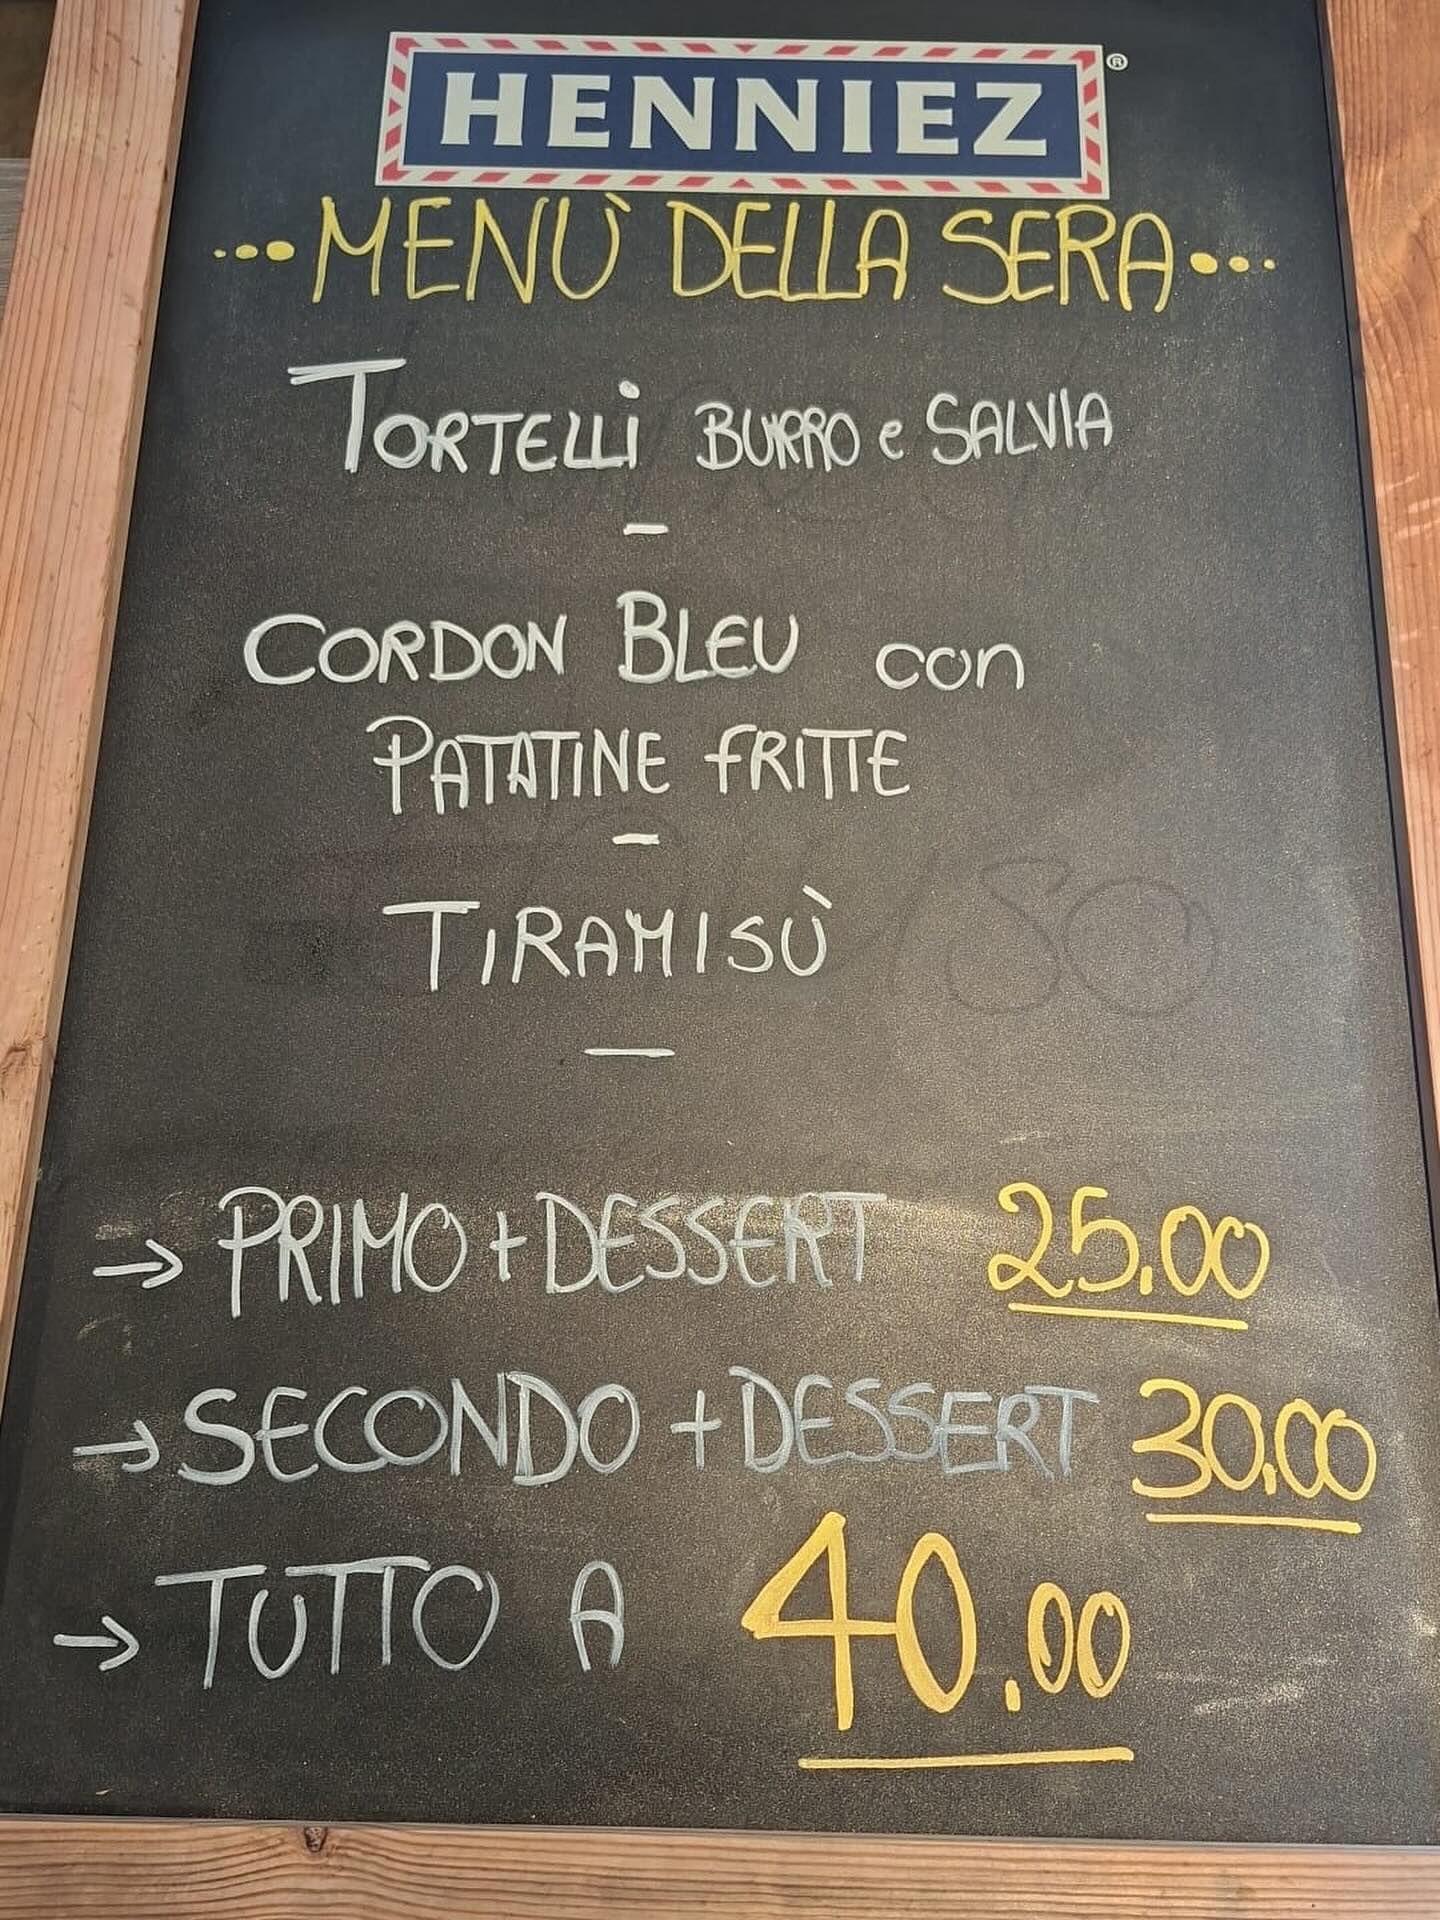 HENNIEZ®
...MENÙ DELLA SERA...
TORTELLi BURRO e SALVIA
-
CORDON BLEU con
PATATINE fRITTE
-
TiRAMISÙ
—
→ PRIMO + DESSERT 25.00
→ SECONDO + DESSERT 30.00
→ TUTTO A 40.00